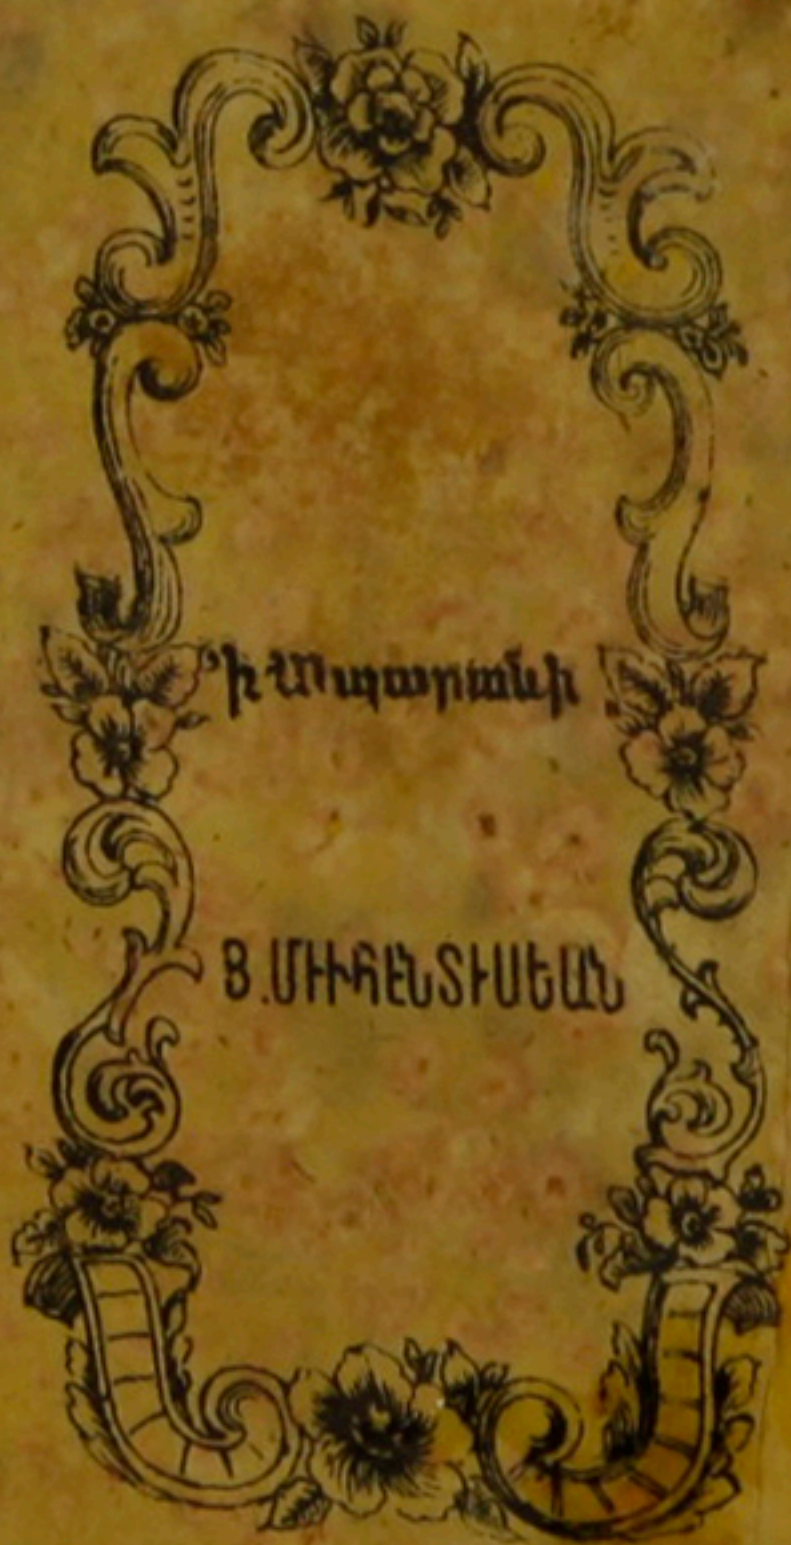 ՚Ի Տպարանի
Յ.ՄԻՒՀԷՆՏԻՍԵԱՆ